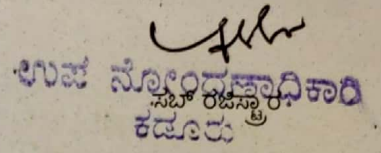 ಉಪ ನೋಂದಣಾಧಿಕಾರಿ
ಸಬ್ ರಜಿಸ್ಟ್ರಾರ್
ಕಡೂರು